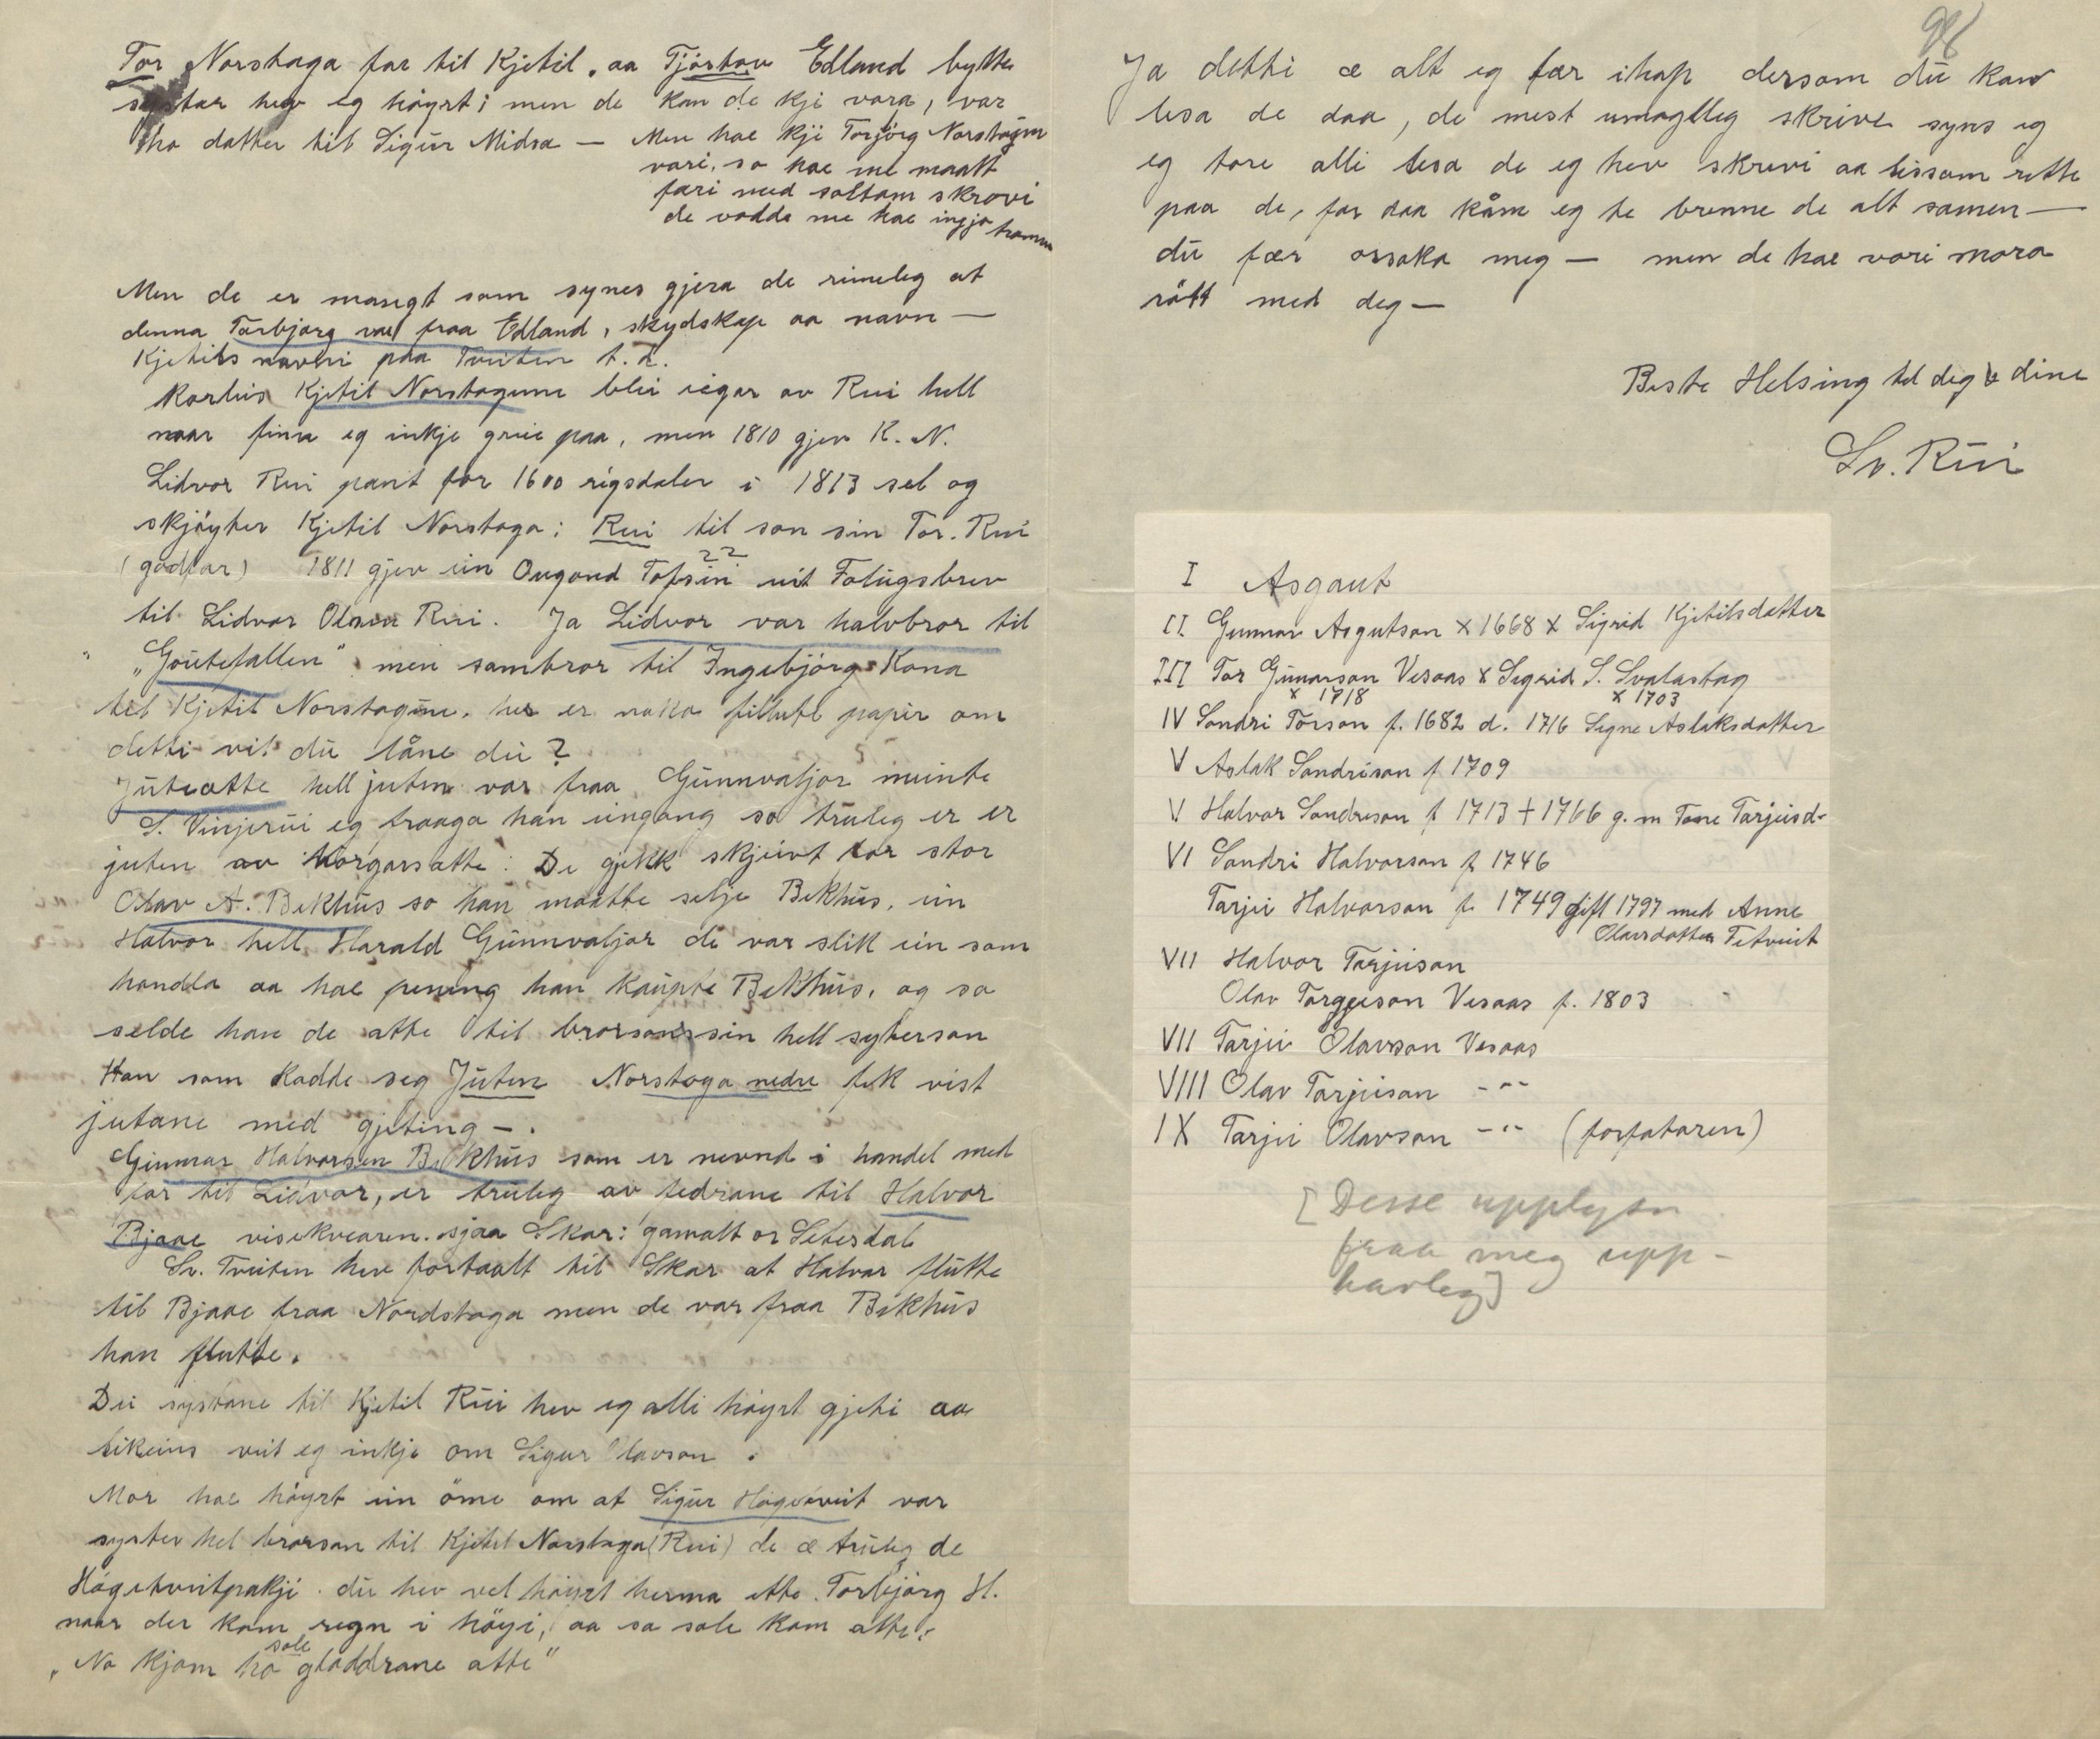 Tor Norstoga far til Kjetil, aa Tjöstov Edland bytte
systar hev eg höyrt; men de kan de kji vara, var
ho dotter til Sigūr Midsa —
Men hae kji Torjörg Norstogun
vori, so hae me maatt
fari med soltom skrovi
de vodde me hae ingje
Men de er mangt som synes gjera de rimeleg at
denna Torbjorg var fraa Edland, skydskap aa navn —
Kjetils navni paa Tveiten t.d.
Korleis Kjetil Norstogune blei eigar av Rui hell
naar finn eg inkje greie paa, men 1810 gjev K. N.
Lidvor Rui pant for 1600 rigsdaler i 1813 sel og
skjöyter Kjetil Norstoga: Rui til son sin Tor. Rui
(godfar) 1811 gjev ein Ougond Tofsin ?? eit Folūgsbrev
til Lidvor Olsen Rui. Ja Lidvor var halvbror til
„Goutefallen" men sambror til Ingebjörg Kona
til Kjetil Norstogūne. her er noko fillute papir om
detti vil dū låne dei?
Jūteætte hell juten var fraa Gūnnvaljor meinte
S. Vinjerūi eg fraaga han eingang so trūleg er er
juten av Norgarsætte: De gjekk skjeivt for stor
Olav A. Bekhūs so han maatte selje Bekhūs, ein
Halvor hell Harald Gūnnvaljor de var slik ein som
handla aa hae pening han kaupte Bekhūs, og so
selde han de atte til brorson sin hell systerson
Han som kadde seg Jūten Norstoga nedre fek vist
jutane med gjeting —.
Gūnnar Halvorsen Bekhūs som er nevnd i handel med
far til Lidvor, er trūleg av fedrane til Halvor
Bjaae visekvearen. sjaa Skar: gamalt or Setesdal
Sv. Tveiten hev fortaalt til Skar at Halvor flūtte
til Bjaae fraa Nordstoga men de var fraa Bekhūs
han flutte.
Dei systane til Kjetil Rūi hev eg alli höyrt gjeti aa
likeins veit eg inkje om Sigur Olavson .
Mor hae höyrt ein öme om at Sigūr Högetveit var
syster hel brorson til Kjetil Norstoga (Rui) de æ trūleg de
Högetveitpakji. dū hev vel höyrt herma ette Torbjörg H.
naar der kom regn i höyi, aa so sole kom atte:
„No kjom ho sole gloddrane atte"
Ja detti æ alt eg fær ihop dersom dū kan
lesa de daa, de mest umoglleg skrive syns eg
eg tore alli lesa de eg hev skrevi aa lissom rette
paa de, for daa kåm eg te brenne de alt samen —
dū fær orsaka meg — men de hae vori mora
rött med deg —
Beste Helsing til deg & dine
Sv. Rūi
I Asgaut
II Gunnar Asgutson x 1668 x Sigrid Kjetilsdotter
III Tor Gūnarson Vesaas x Sigrid S. Svalastog
x 1718 x 1703
IV Sondri Torson f. 1682 d. 1716 Signe Aslaksdotter
V Aslak Sondrison f 1709
V Halvor Sondreson f 1713 + 1766 g. m Tone Tarjeisd-
VI Sondri Halvorson f 1746
Tarjei Halvorson f. 1749 gift 1797 med Anne
Olavsdotter Tetveit
VII Halvor Tarjeison
Olav Torggeison Vesaas f. 1803
VII Tarjei Olavson Vesaas
VIII Olav Tarjeison -"-
IX Tarjei Olavson -"- (forfataren)
[Desse upplysn
fraa meg upp-
havleg]